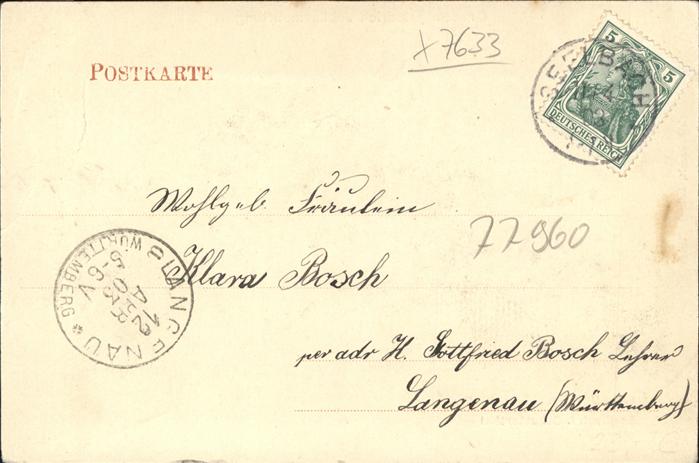 POSTKARTE
X7633
5 5
DEUTSCHES REICH
SEELBACH
Wohlgeb Fräulein
77960
Klara Bosch
LANGENAU
WÜRTTEMBERG
5-6V
12 APR 03
per adr H. Gottfried Bosch Lehrer
Langenau (Württemberg)